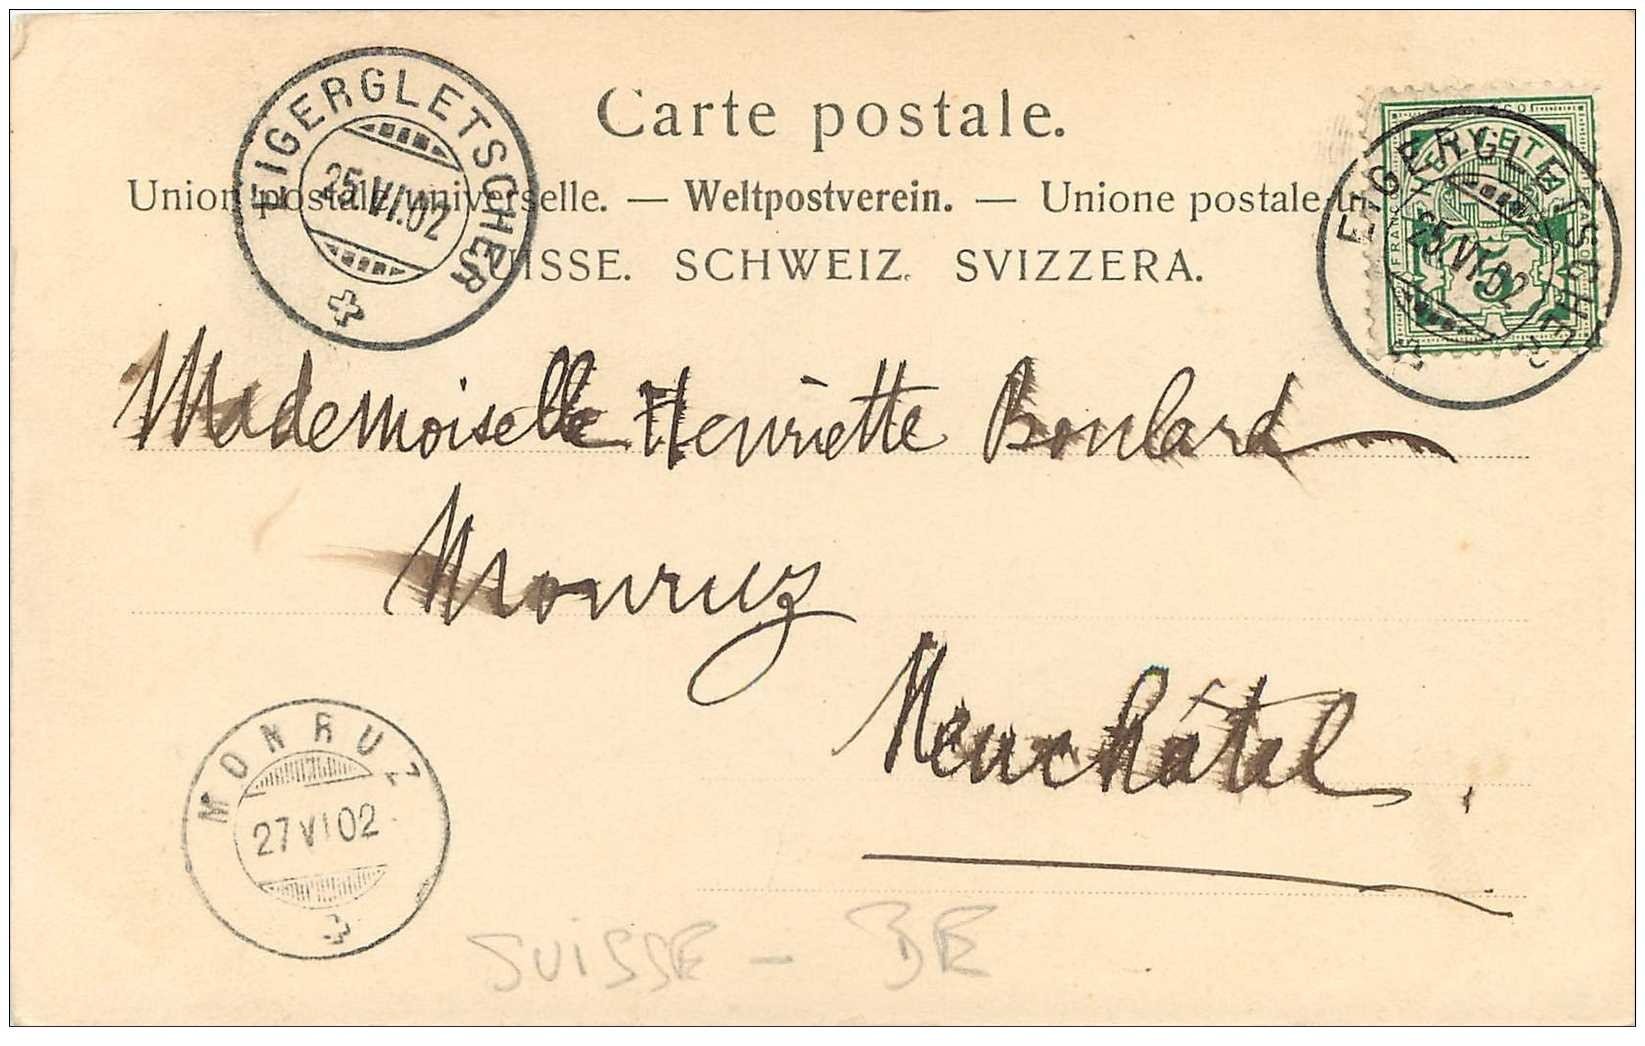 Carte postale.
Union postale universelle. — Weltpostverein. — Unione postale un
SUISSE. SCHWEIZ. SVIZZERA.
EIGERGLETSCHER
25.VI.02
EIGERGLETSCHER
25.VI.02
FRANCO
HELVETIA
5
Mademoiselle Henriette Bonlard
Monruz
Neuchâtel.
MONRUZ
27 VI 02
SUISSE - BE